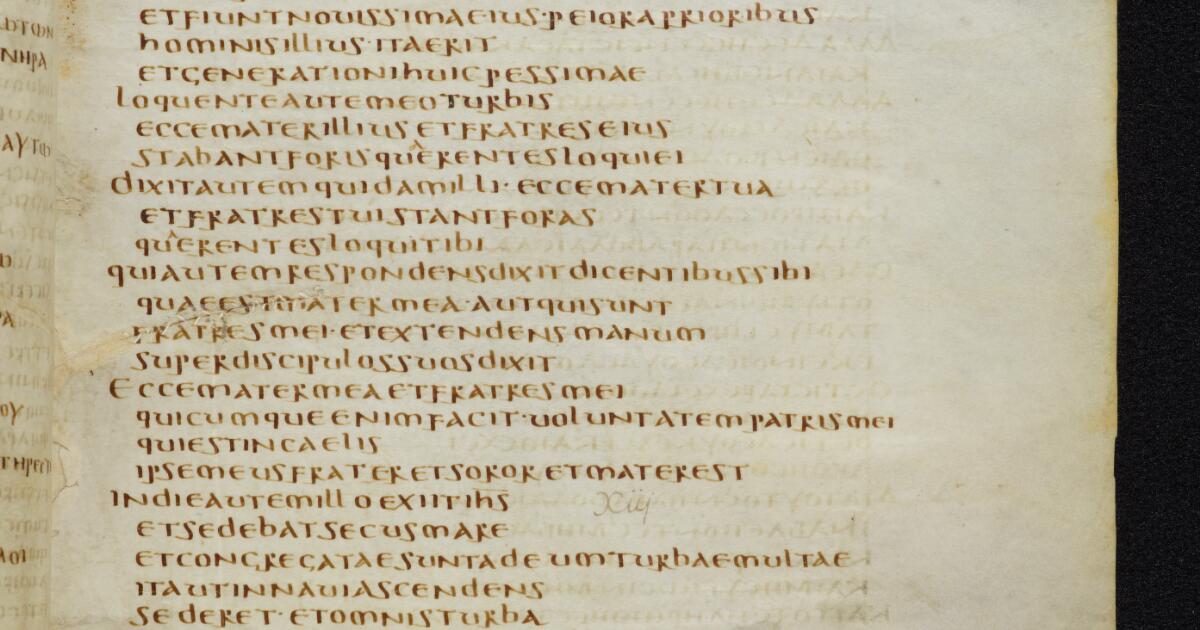 ETFIUNTNOUISSIMAEIUS·PEIORAPRIORIBUS
HOMINISILLIUS·ITAERIT
ETGENERATIONIHUICPESSIMAE
LOQUENTEAUTEMEOTURBIS
ECCEMATERILLIUSETFRATRESEIUS
STABANTFORISQUERENTESLOQUIEI
DIXITAUTEMQUIDAMILLI·ECCEMATERTUA
ETFRATRESTUISTANTFORAS
QUERENTESLOQUITIBI
QUIAUTEMRESPONDENSDIXITDICENTIBUSSIBI
QUAEESTMATERMEA·AUTQUISUNT
FRATRESMEI·ETEXTENDENSMANUM
SUPERDISCIPULOSSUOSDIXIT
ECCEMATERMEAETFRATRESMEI
QUICUMQUEENIMFACIT·UOLUNTATEMPATRISMEI
QUIESTINCAELIS
IPSEMEUSFRATERETSORORETMATEREST
INDIEAUTEMILLOEXIITIHS Xiij
ETSEDEBATSECUSMARE
ETCONGREGATAESUNTADEUMTURBAEMULTAE
ITAUTINNAUIASCENDENS
SEDERET·ETOMNISTURBA